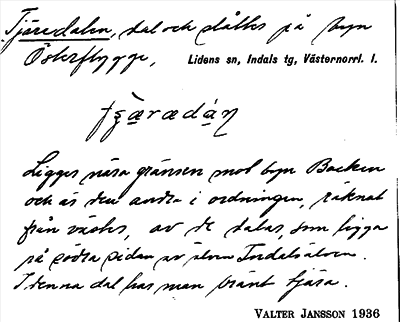 Tjäredalen, dal och slåtter på byn
Österflygge, Lidens sn, Indals tg, Västernorrl. l.
Ligger nära gränsen mot byn Backen
och är den andra i ordningen, räknat
från väster, av de dalar, som ligga
på södra sidan av älven Indalsälven.
I denna dal har man bränt tjära.
VALTER JANSSON 1936